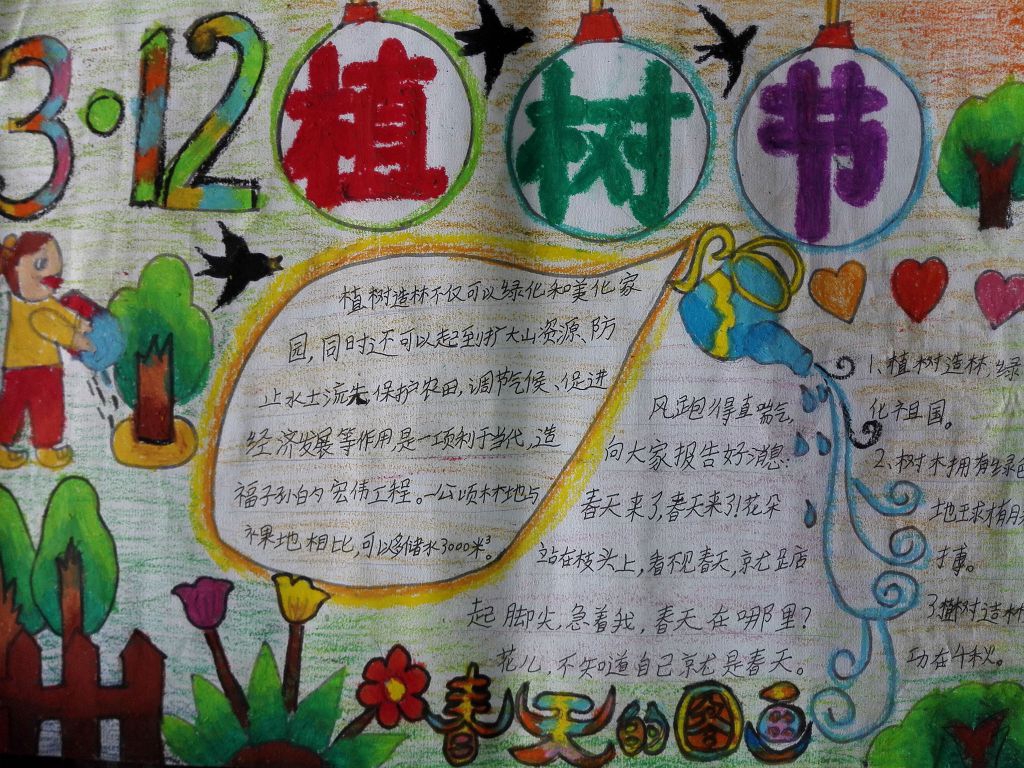 3·12 植树节
植树造林不仅可以绿化和美化家
园,同时还可以起到扩大山资源、防
止水土流失、保护农田,调节气候、促进
经济发展等作用,是一项利于当代,造
福子孙的宏伟工程。一公顷林地与
裸地相比,可以多储水3000米³。
风跑得直喘气,
向大家报告好消息:
春天来了,春天来了!花朵
站在枝头上,看不见春天,就踮
起脚尖,急着找,春天在哪里?
花儿,不知道自己就是春天。
1、植树造林,绿
化祖国。
2、树木拥有绿色
地球才有
搏。
3、植树造林
功在千秋。
春天的图画